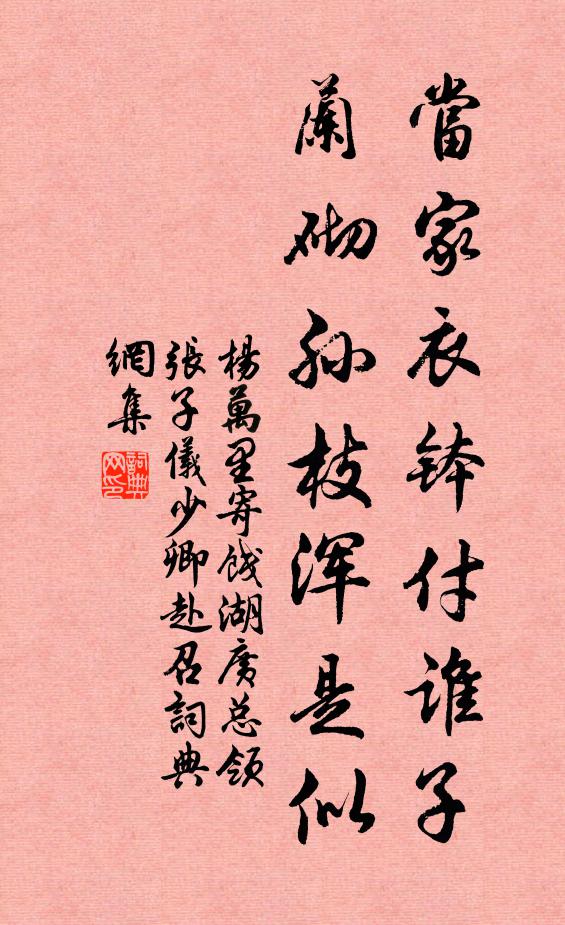 當家衣鉢付谁子
蘭砌孙枝浑是似
楊萬里寄餞湖廣总領
張子儀少卿赴召詞典
網集
詞典
网印